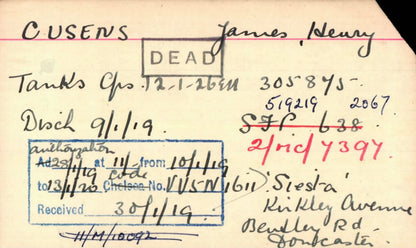 CUSENS James, Henry
DEAD
Tanks Cps. 12-1-26 EH 305875.
519219 2067.
Disch 9/1/19. SFP 638
2/MC/7397.
authorization
Ad 28/1/19 at 11/- from 10/1/19
code
to 13/1/20 Chelsea No. VVSN 1611). 'Siesta'
Kirkley Avenue
Received 30/1/19. Bentley Rd-
11/M/10092 Doncaster.